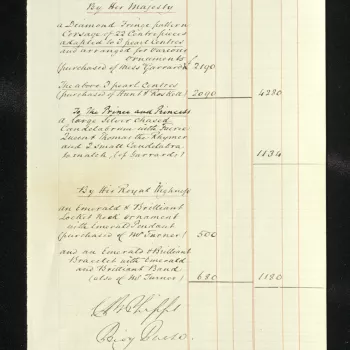 By Her Majesty
a Diamond Fringe pattern
Corsage of 22 Centrepieces
adapted to 3 pearl Centres
and arranged for various
Ornaments £
(purchased of Messrs Garrard) 2190
The above 3 pearl Centres
(purchased of Hunt & Roskell) 2090 4280
To The Prince and Princess
a large Silver Chased
Candelabrum with Faerie
Queen & Thomas the Rhymer
and 2 small Candelabra
to match, (of Garrards) 1134
By Her Royal Highness
an Emerald & Brilliant
Locket Neck ornament
with Emerald Pendant
(purchased of Mr Turner) 500
and an Emerald & Brilliant
Bracelet with Emerald
and Brilliant Band
(also of Mr Turner) 680 1180
C B Phipps
Privy Purse